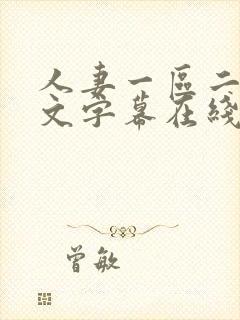 人妻一區二
文字幕在綫
曾敏